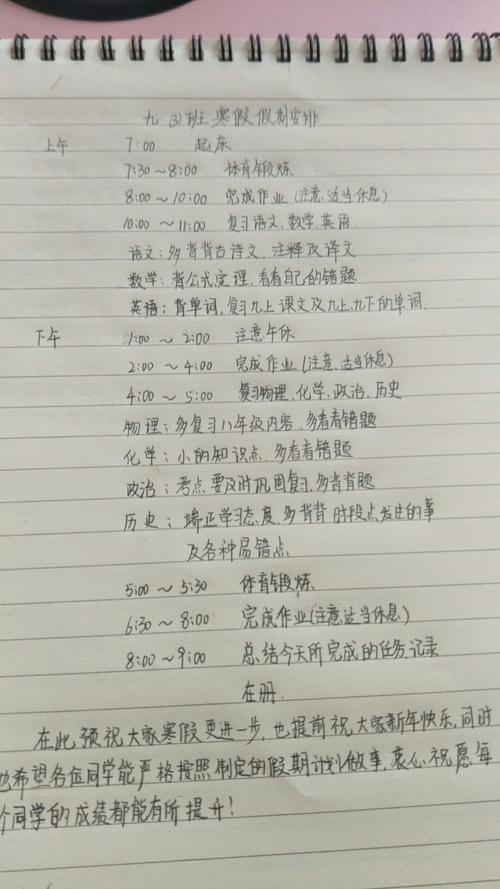 九(3)班寒假假期安排
上午 7:00 起床
7:30~8:00 体育锻炼
8:00~10:00 完成作业(注意适当休息)
10:00~11:00 复习语文,数学,英语.
语文:多背背古诗文,注释及译文
数学:背公式定理,看看自己的错题
英语:背单词,复习九上课文及九上,九下的单词.
下午 1:00~2:00 注意午休
2:00~4:00 完成作业(注意,适当休息)
4:00~5:00 复习物理,化学,政治,历史
物理:多复习八年级内容,多看看错题.
化学:小的知识点,多看看错题
政治:考点要及时巩固复习,多背背题
历史:端正学习态度,多背背时段点,发生的事
及各种易错点
5:00~5:30 体育锻炼
6:30~8:00 完成作业(注意适当休息)
8:00~9:00 总结今天所完成的任务,记录
在册.
在此,预祝大家寒假更进一步,也提前祝大家新年快乐,同时
也希望各位同学能严格按照制定的假期计划做事,衷心祝愿每
个同学的成绩都能有所提升!